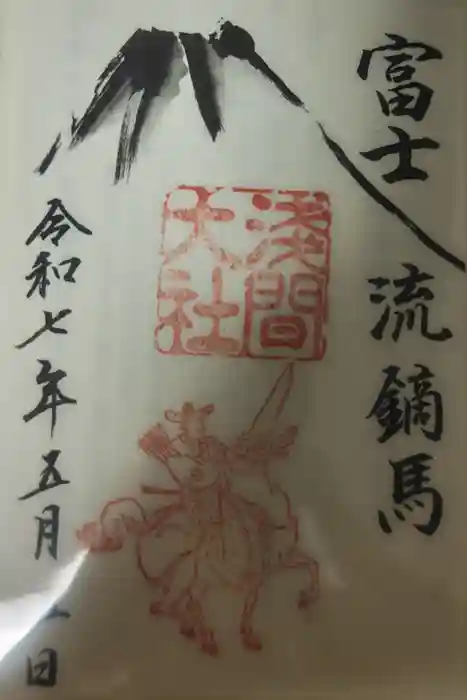 富士 流鏑馬
浅間
大社
令和七年五月 日